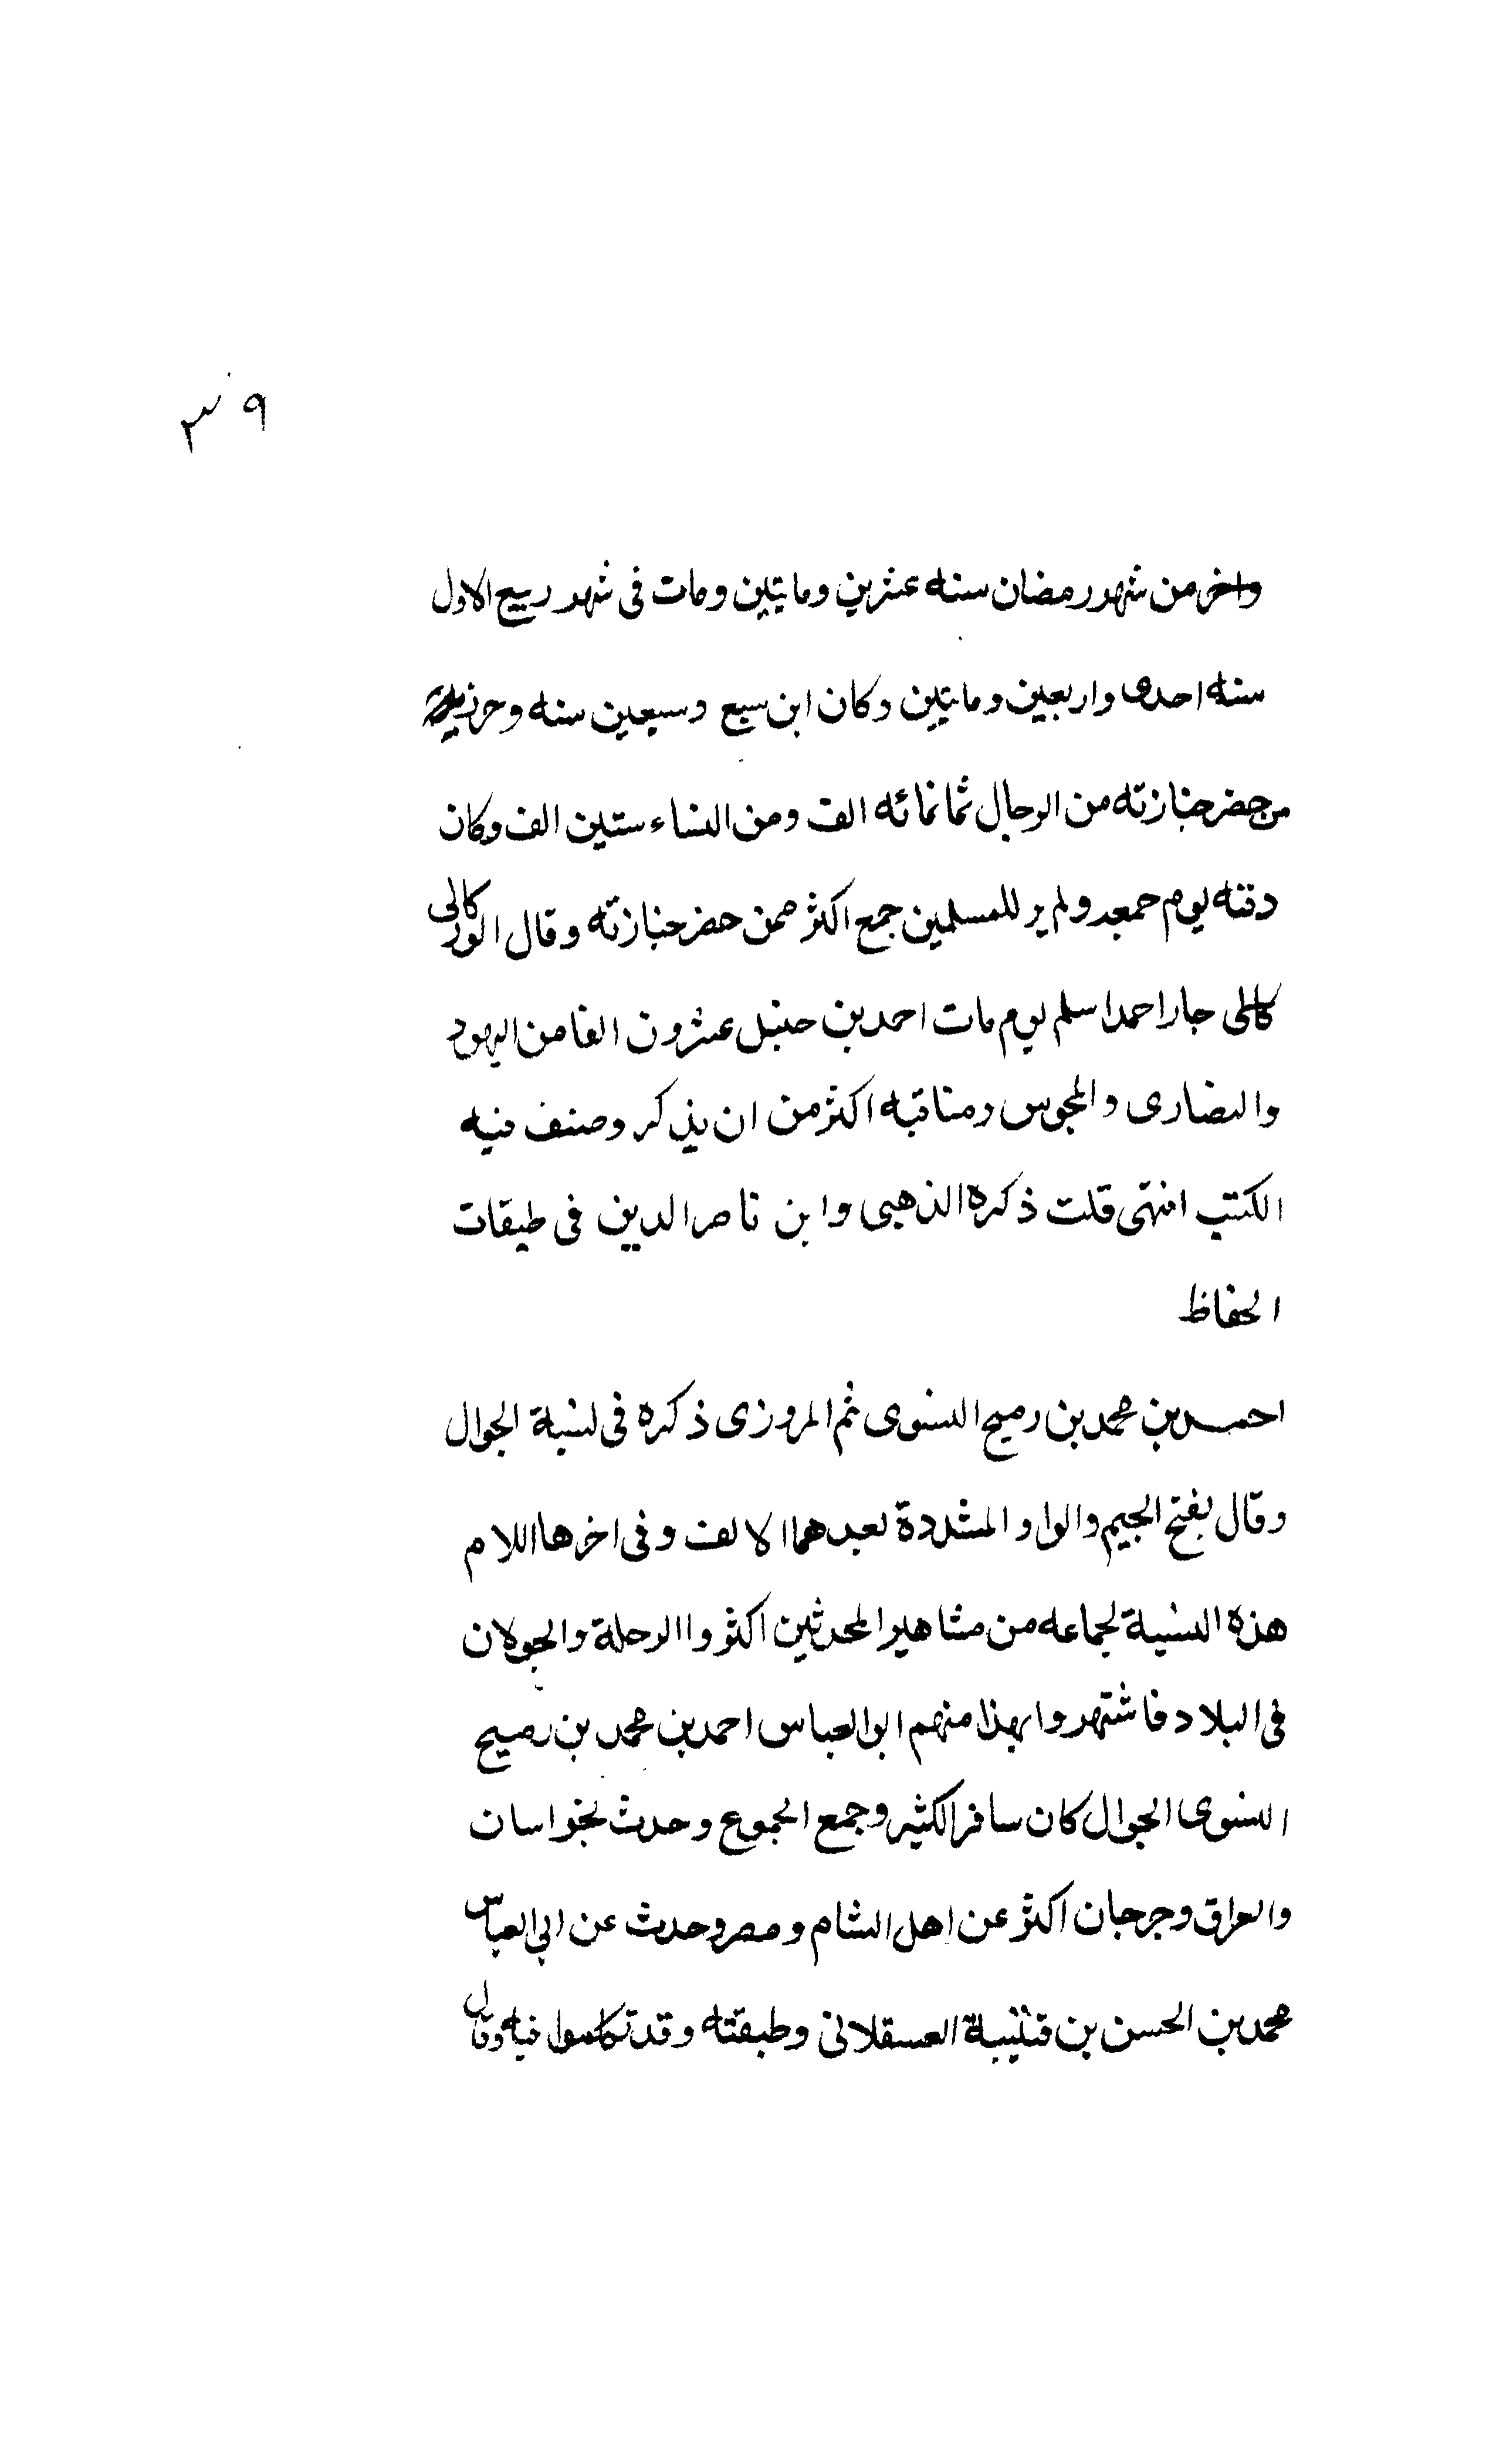 ٣٩
واخر من شهور رمضان سنه عشرين ومايتين ومات فى شهر ربيع الاول
سنه احدى واربعين ومايتين وكان ابن سبع وسبعين سنه وحزر
من حضر جنازته من الرجال ثمانمائه الف ومن النساء ستين الف وكان
دفنه يوم جمعه ولم ير للمسلمين جمع اكثر ممن حضر جنازته وقال الوركالى
كالى جار احمد اسلم يوم مات احمد بن حنبل عشرون الفا من اليهود
والنصارى والمجوس ومناقبه اكثر من ان يذكر وصنف فيه
الكتب انتهى قلت ذكره الذهبى وابن ناصر الدين فى طبقات
الحفاظ
احمد بن محمد بن رميح النسوى ثم المروزى ذكره فى نسبة الجوال
وقال بفتح الجيم والواو المشددة بعدهما الالف وفى اخرها اللام
هذه النسبة لجماعه من مشاهير المحدثين اكثروا الرحلة والجولان
فى البلاد فاشتهروا بهذا منهم ابو العباس احمد بن محمد بن رميح
النسوى الجوال كان سافر الكثير وجمع الجموع وحدث بخراسان
والعراق وجرجان اكثر عن اهل الشام ومصر وحدث عن ابى العباس
محمد بن الحسن بن قتيبة العسقلانى وطبقته وقد تكلموا فيه وقال